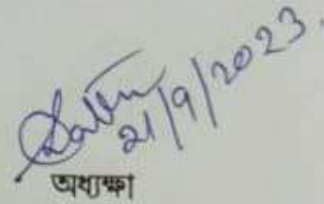 21/9/2023.
অধ্যক্ষা